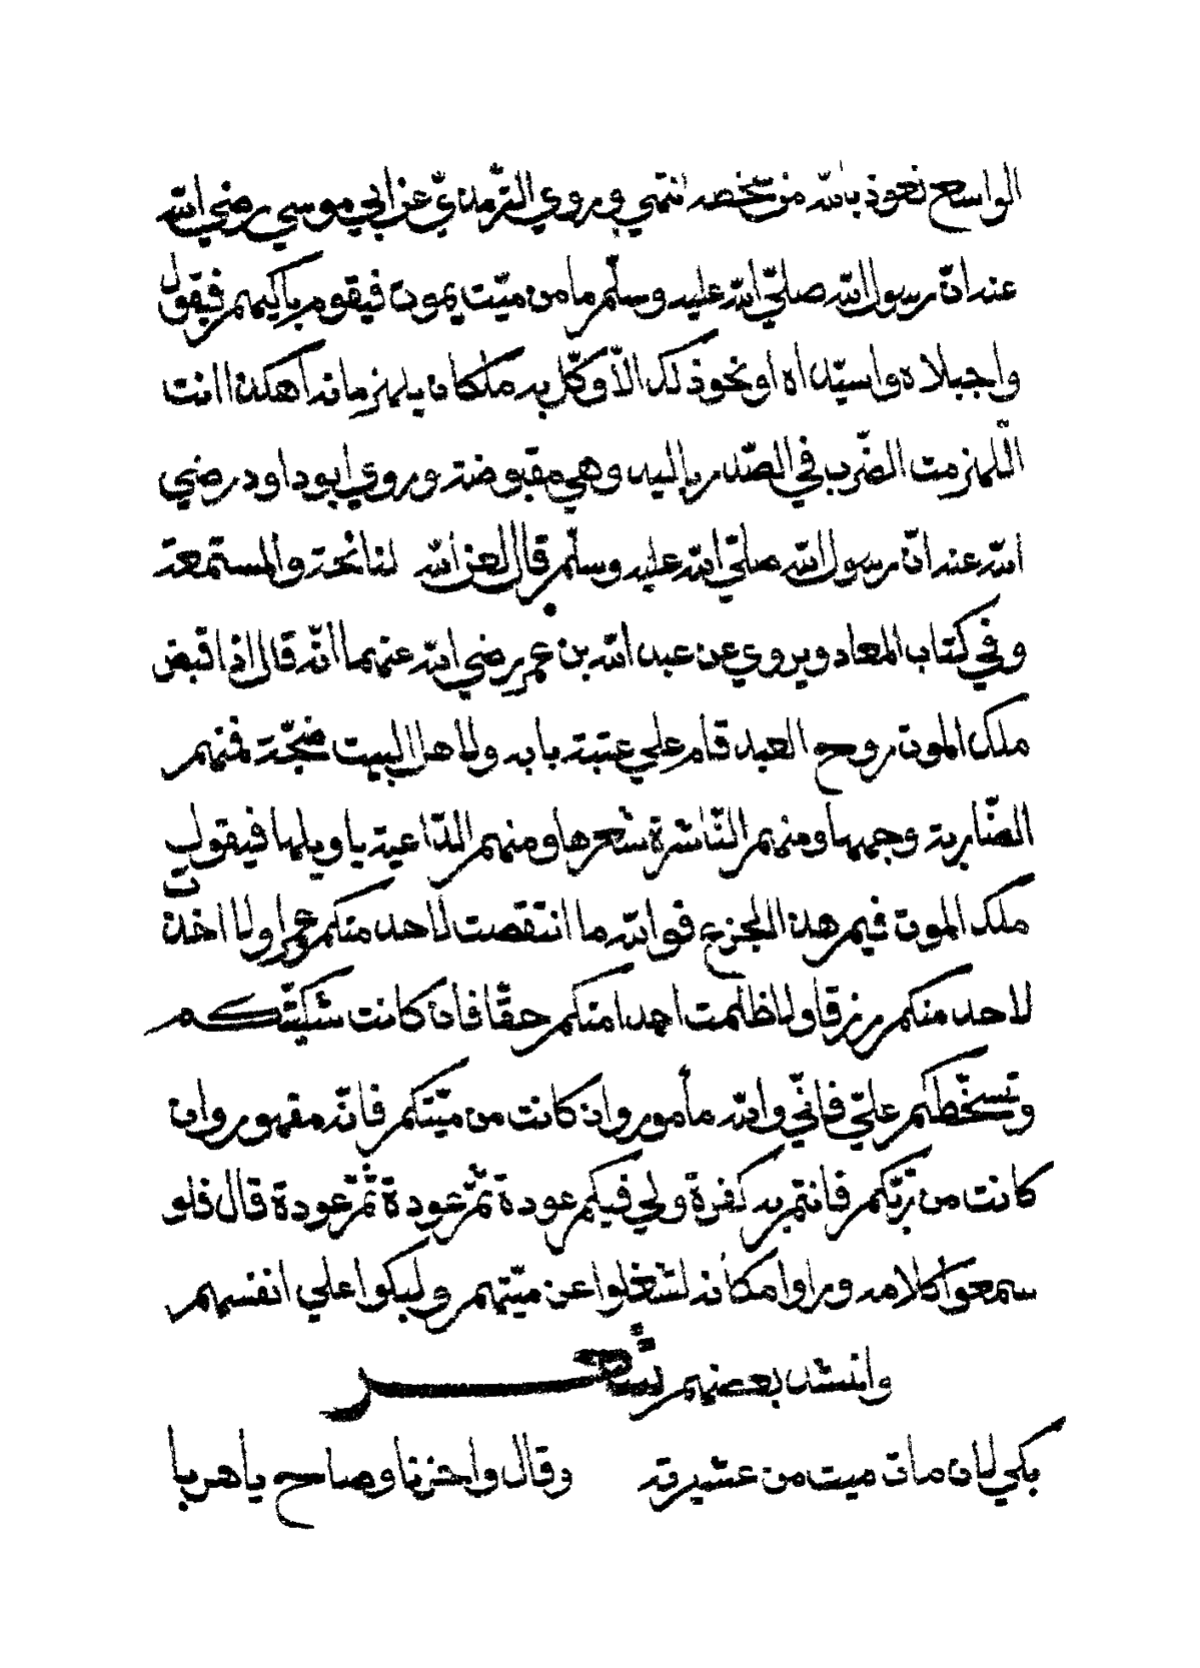 الواسع نعوذ بالله من سخطه انتهي وروي الترمذيّ عن ابي موسي رضي الله
عنه انّ رسول الله صلّي الله عليه وسلّم ما من ميّت يموت فيقوم باكيهم فيقول
واجبلاه واسيّداه او نحو ذلك الاّ وكّل به ملكان يلهزمانه أهكذا انت
اللّهزمت الضّرب في الصّدر باليد وهي مقبوضة وروي ابو داود رضي
الله عنه انّ رسول الله صلّي الله عليه وسلّم قال لعن الله لنائحة والمستمعة
وفي كتاب المعاد ويروي عن عبد الله بن عمر رضي الله عنهما انّه قال اذا قبض
ملك الموت روح العبد قام علي عتبة بابه ولاهل البيت ضجّة فمنهم
الضّاربة وجهها ومنهم النّاشرة شعرها ومنهم الدّاعية ياويلها فيقول
ملك الموت فيم هذا الجزع فوالله ما انتقصت لاحد منكم عمرا ولا اخذت
لاحد منكم رزقا ولا ظلمت احدا منكم حقّا فان كانت شكيّتكم
وتسخّطكم عليّ فانّي والله مأمور وان كانت من ميّتكم فانّه مقهور وان
كانت من ربّكم فانتم به كفرة ولي فيكم عودة ثمّ عودة ثمّ عودة قال فلو
سمعوا كلامه وراوا مكانه لشغلوا عن ميّتهم ولبكوا علي انفسهم
وانشد بعضهم شعر
بكي لان مات ميت من عشيرته وقال واحزنا وصاح ياهربا